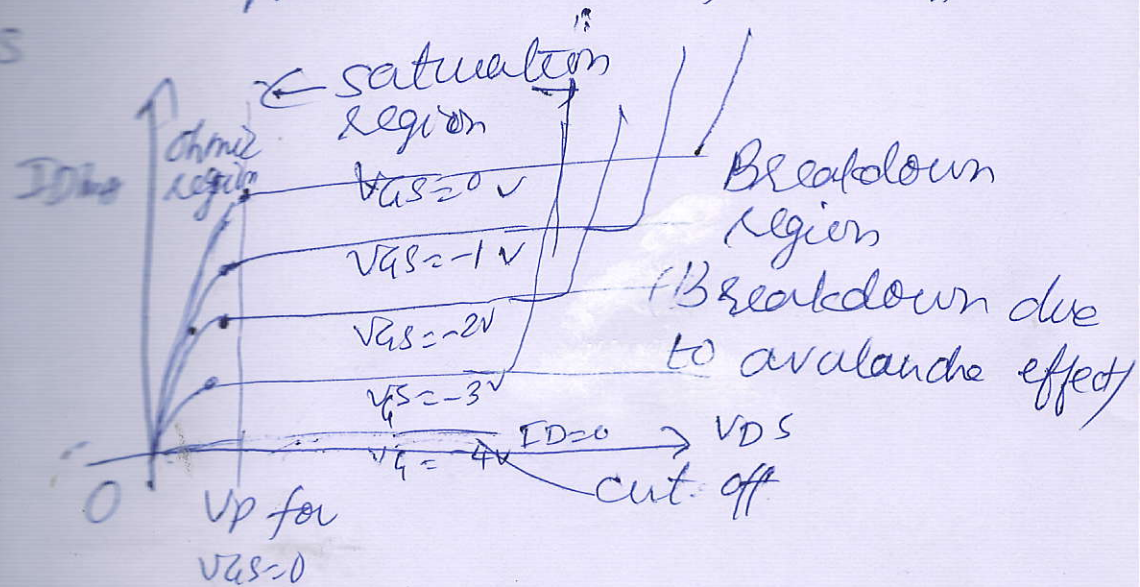 ← saturation
region
ohmic
region
ID
VGS=0 V
VGS=-1 V
VGS=-2V
VGS=-3V
ID=0
VG=-4V
VDS
cut off
Breakdown
region
(Breakdown due
to avalanche effect)
O
VP for
VGS=0